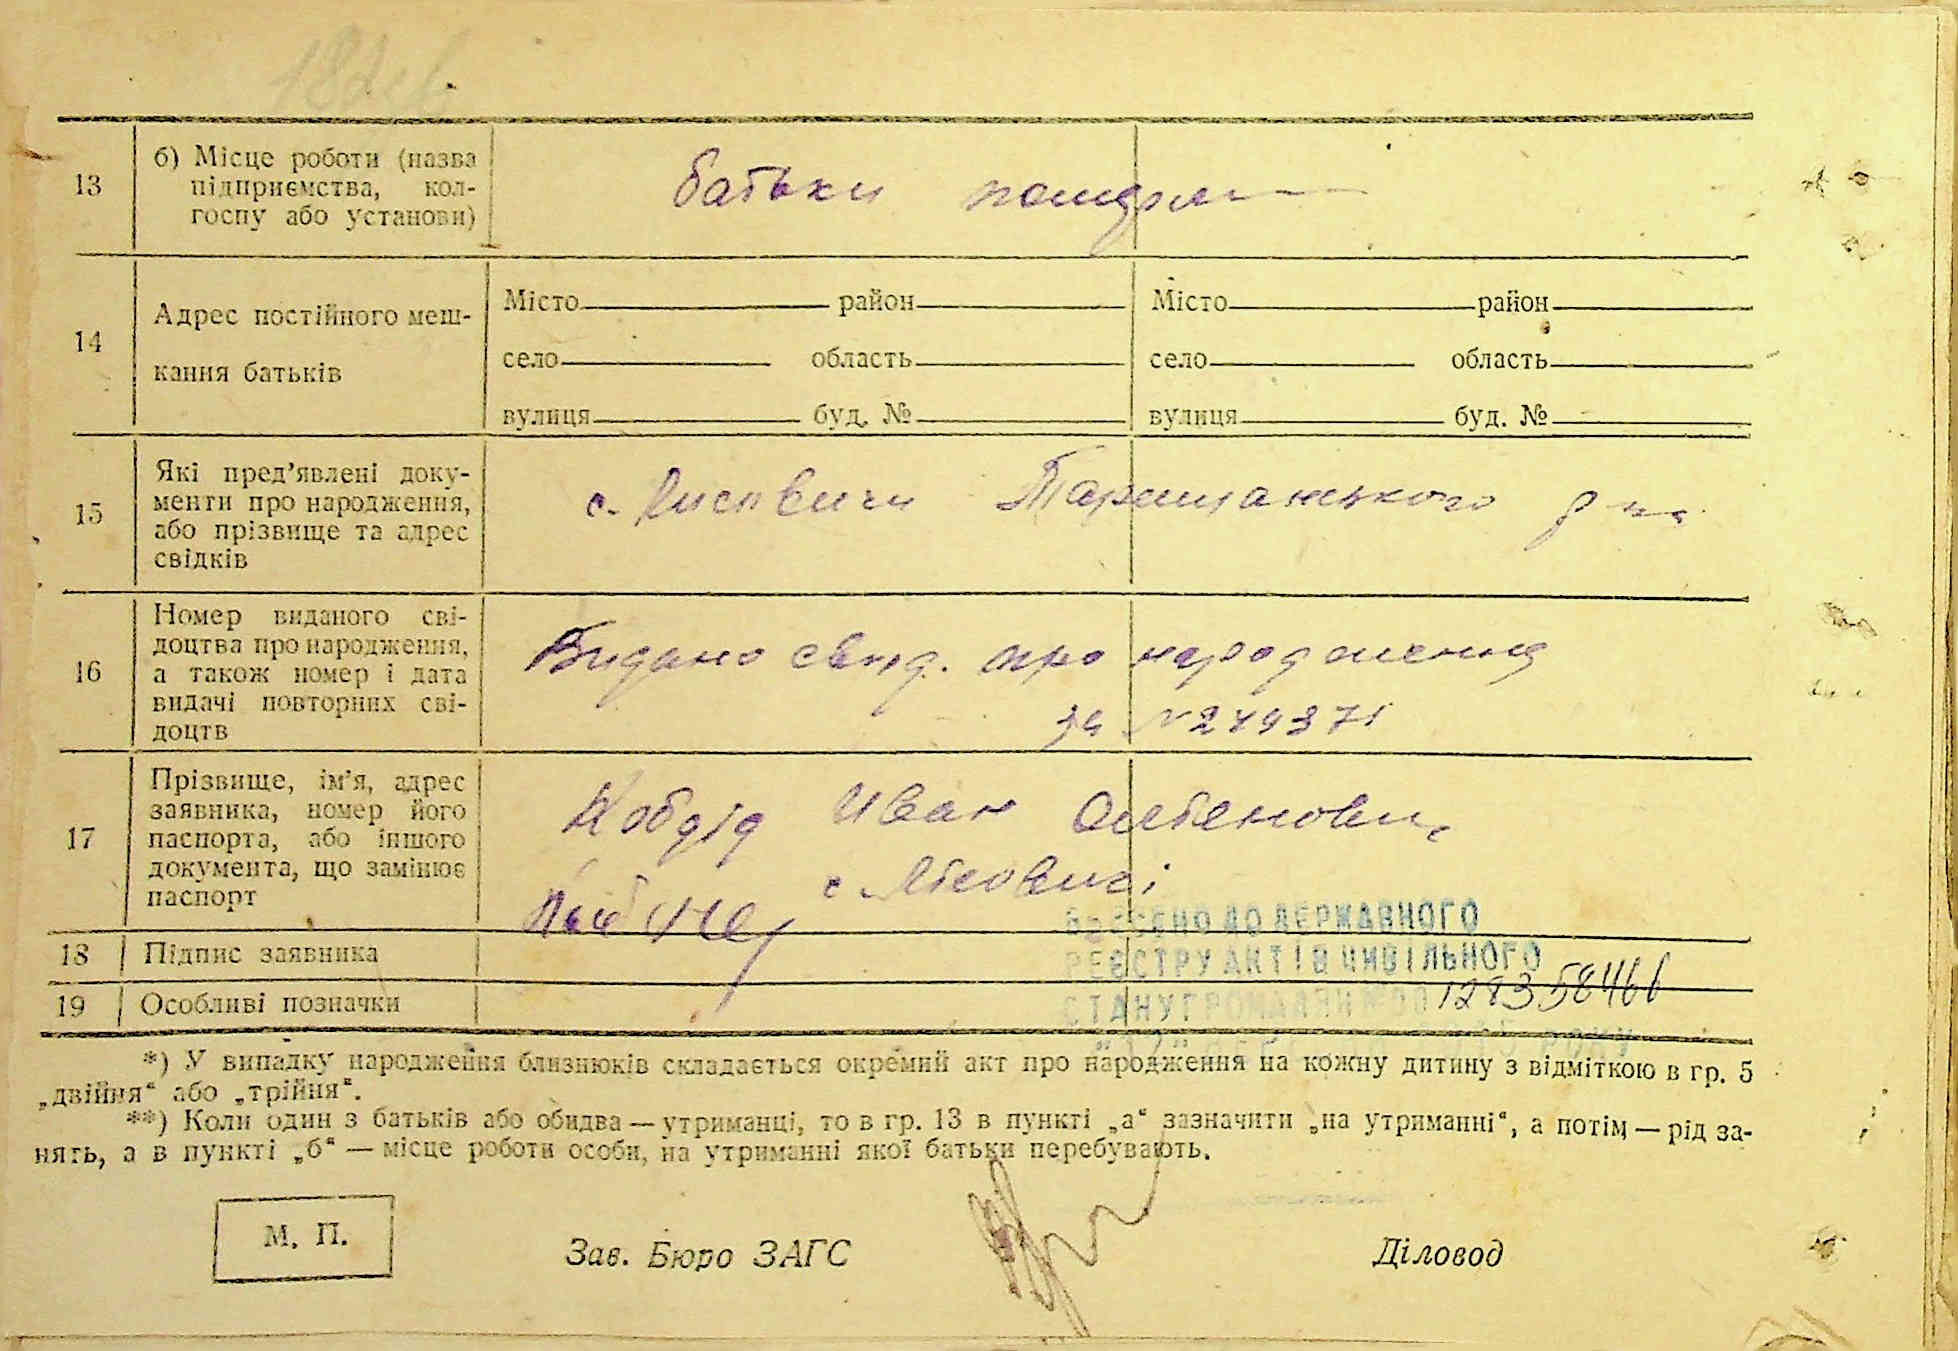 13
б) Місце роботи (назва
підприємства, кол-
госпу або установи)
батьки
14
Адрес постійного меш-
кання батьків
Місто район Місто район
село область село область
вулиця буд. № вулиця буд. №
15
Які пред’явлені доку-
менти про народження,
або прізвище та адрес
свідків
с. Таращанського р-н
16
Номер виданого сві-
доцтва про народження,
а також номер і дата
видачі повторних сві-
доцтв
Видано свид. про народження
за №
17
Прізвище, ім’я, адрес
заявника, номер його
паспорта, або іншого
документа, що замінює
паспорт
Кобдід Иван
с. Лісовичі
18 Підпис заявника
19 Особливі позначки
ВНЕСЕНО ДО ДЕРЖАВНОГО
РЕЄСТРУ АКТІВ ЦИВІЛЬНОГО
СТАНУ ГРОМАДЯН
*) У випадку народження близнюків складається окремий акт про народження на кожну дитину з відміткою в гр. 5
„двійня“ або „трійня“.
**) Коли один з батьків або обидва — утриманці, то в гр. 13 в пункті „а“ зазначити „на утриманні“, а потім — рід за-
нять, а в пункті „б“ — місце роботи особи, на утриманні якої батьки перебувають.
М. П.
Зав. Бюро ЗАГС Діловод